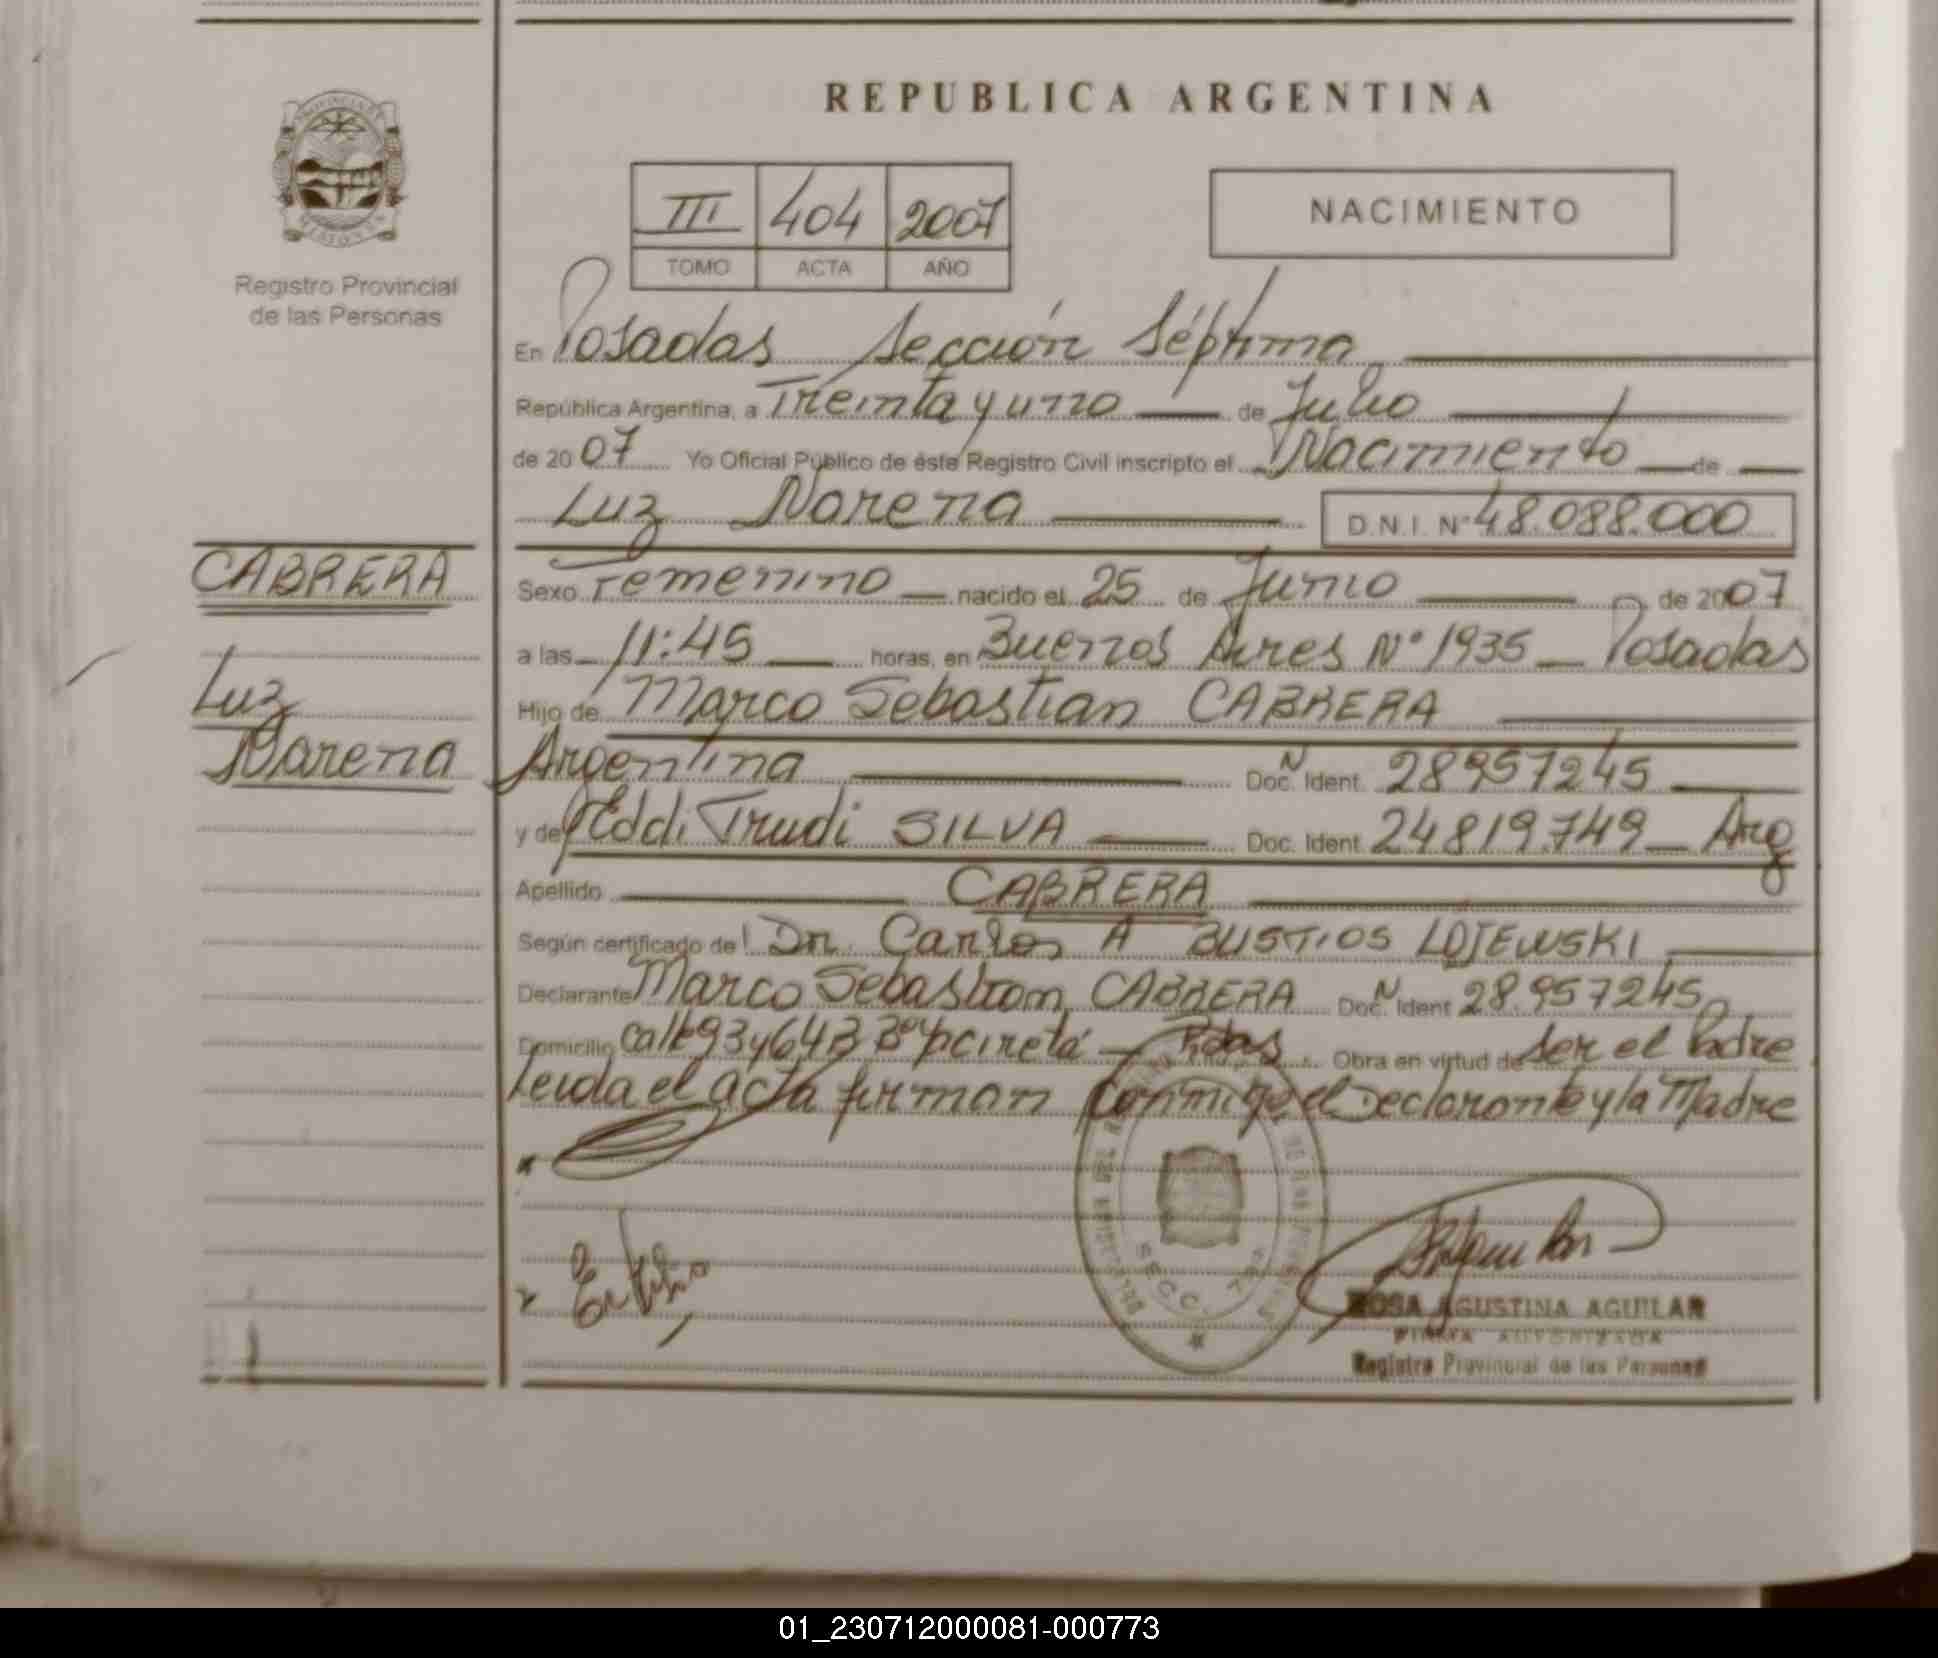 REPUBLICA ARGENTINA
III 404 2007
TOMO ACTA AÑO
NACIMIENTO
Registro Provincial
de las Personas
En Posadas Sección Séptima
República Argentina, a Treinta y uno de Julio
de 2007 Yo Oficial Público de éste Registro Civil inscripto el Nacimiento de
Luz Narena D.N.I. Nº 48.088.000
CABRERA
Luz
Narena
Sexo Femenino nacido el 25 de Junio de 2007
a las 11:45 horas, en Buenos Aires Nº 1935 Posadas
Hijo de Marco Sebastian CABRERA
Argentina Doc. Ident. 28957245
y de Eddi Trudi SILVA Doc. Ident. 24819.749 Arg
Apellido CABRERA
Según certificado de Dr. Carlos A BUSTIOS LOJEWSKI
Declarante Marco Sebastian CABRERA Doc. Ident 28.957245
Domicilio calle 93 y 64B Bº Ypcireta Pdas. Obra en virtud de ser el Padre
Leida el acta firman conmigo el Declarante y la Madre
SECC. 7
ROSA AGUSTINA AGUILAR
FIRMA AUTORIZADA
Registro Provincial de las Personas
01_230712000081-000773